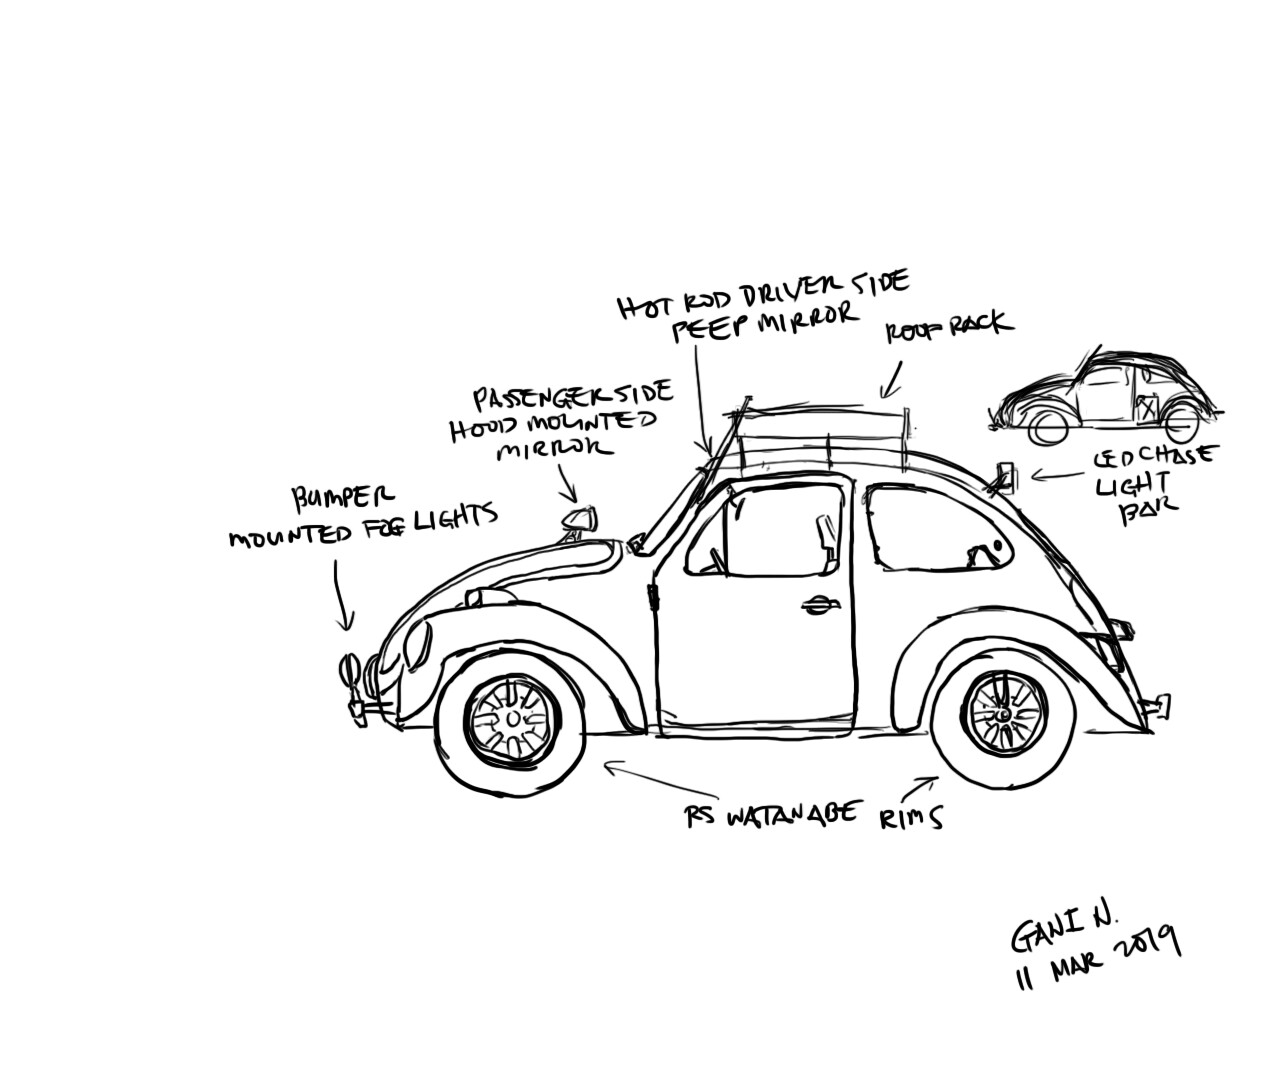 HOT ROD DRIVER SIDE
PEEP MIRROR
ROOF RACK
PASSENGER SIDE
HOOD MOUNTED
MIRROR
LED CHASE
LIGHT
BAR
BUMPER
MOUNTED FOG LIGHTS
RS WATANABE RIMS
GANI N.
11 MAR 2019